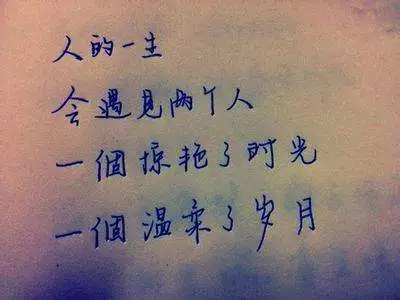 人的一生
会遇見两个人
一個惊艳了时光
一個温柔了岁月